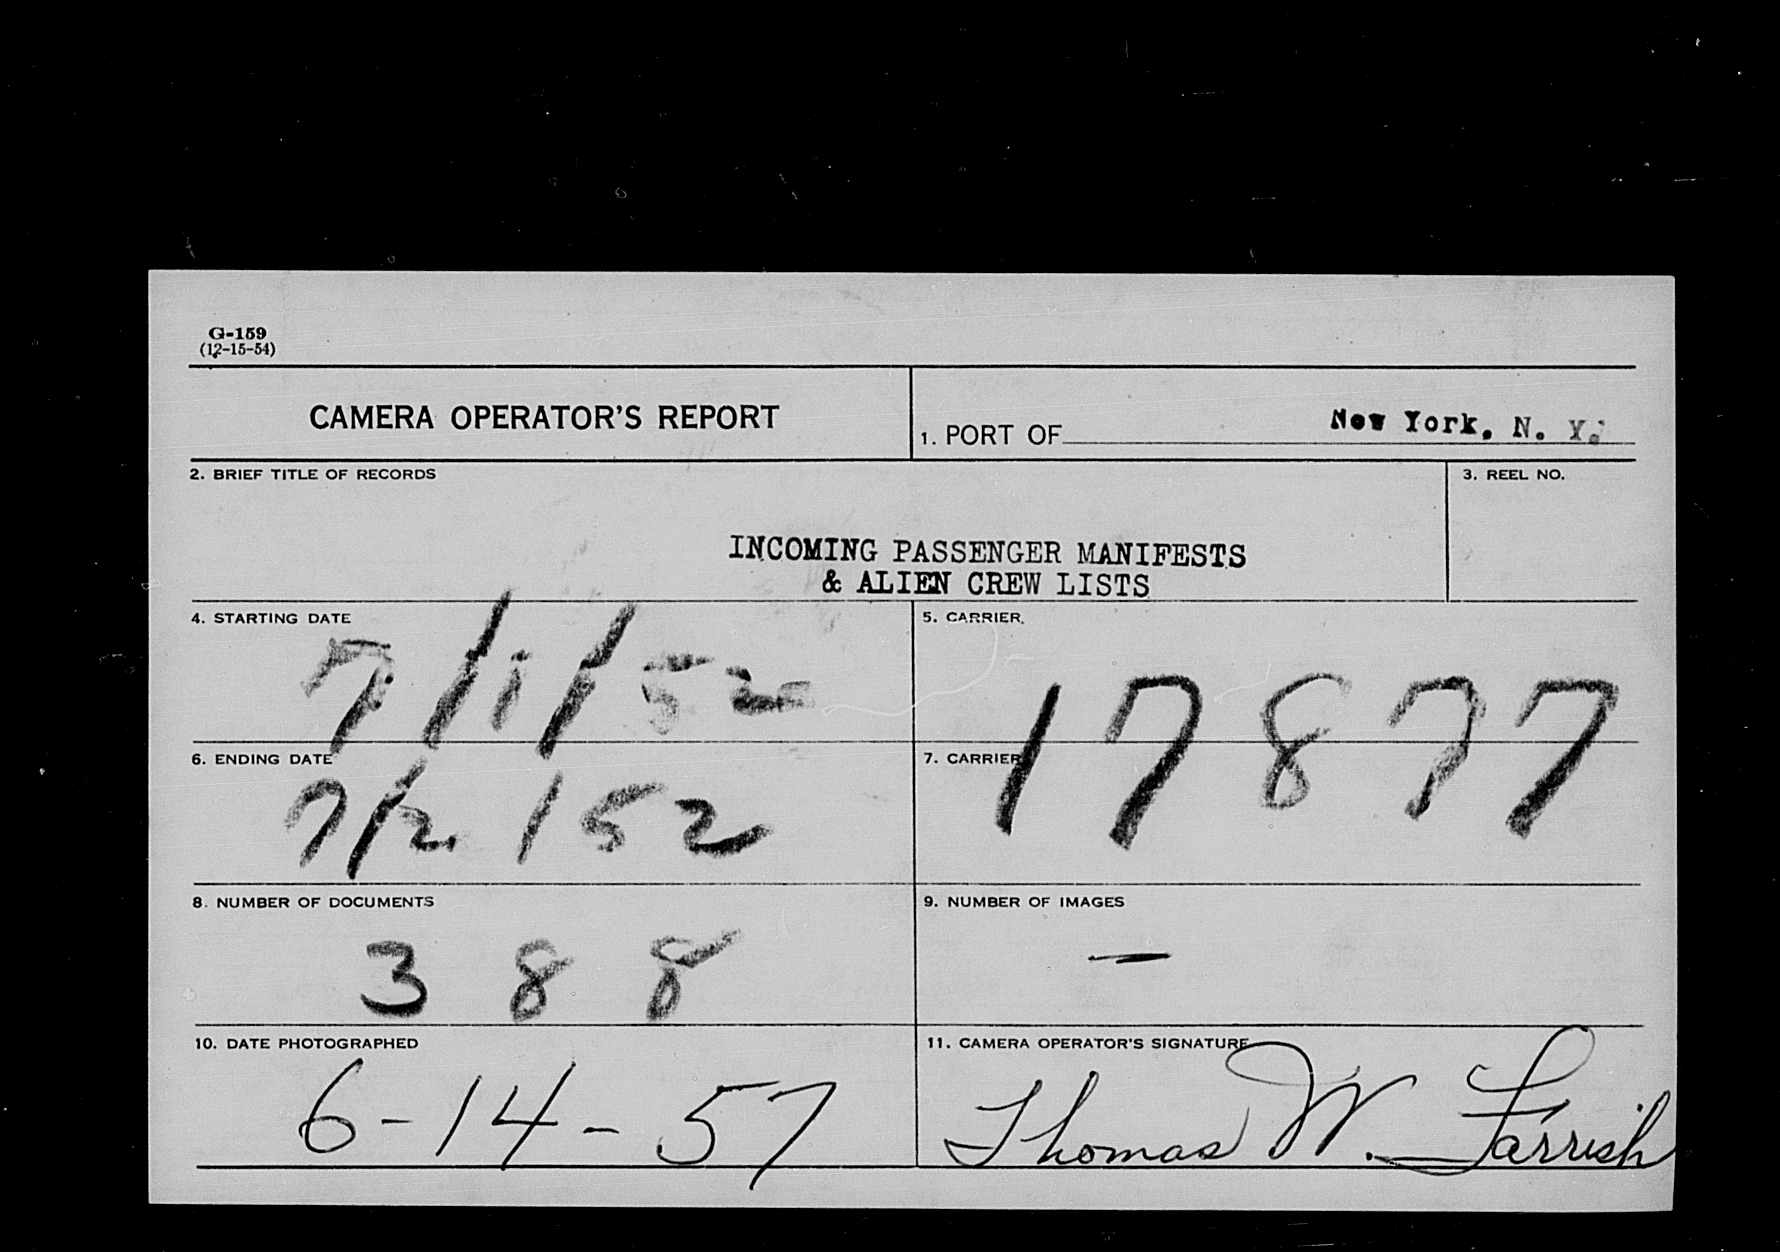 G-159
(12-15-54)
CAMERA OPERATOR'S REPORT
1. PORT OF New York, N. Y.
2. BRIEF TITLE OF RECORDS
3. REEL NO.
INCOMING PASSENGER MANIFESTS
& ALIEN CREW LISTS
4. STARTING DATE
7/1/52
5. CARRIER
17877
6. ENDING DATE
7/2/52
7. CARRIER
8. NUMBER OF DOCUMENTS
388
9. NUMBER OF IMAGES
—
10. DATE PHOTOGRAPHED
6-14-57
11. CAMERA OPERATOR'S SIGNATURE
Thomas W. Farrish